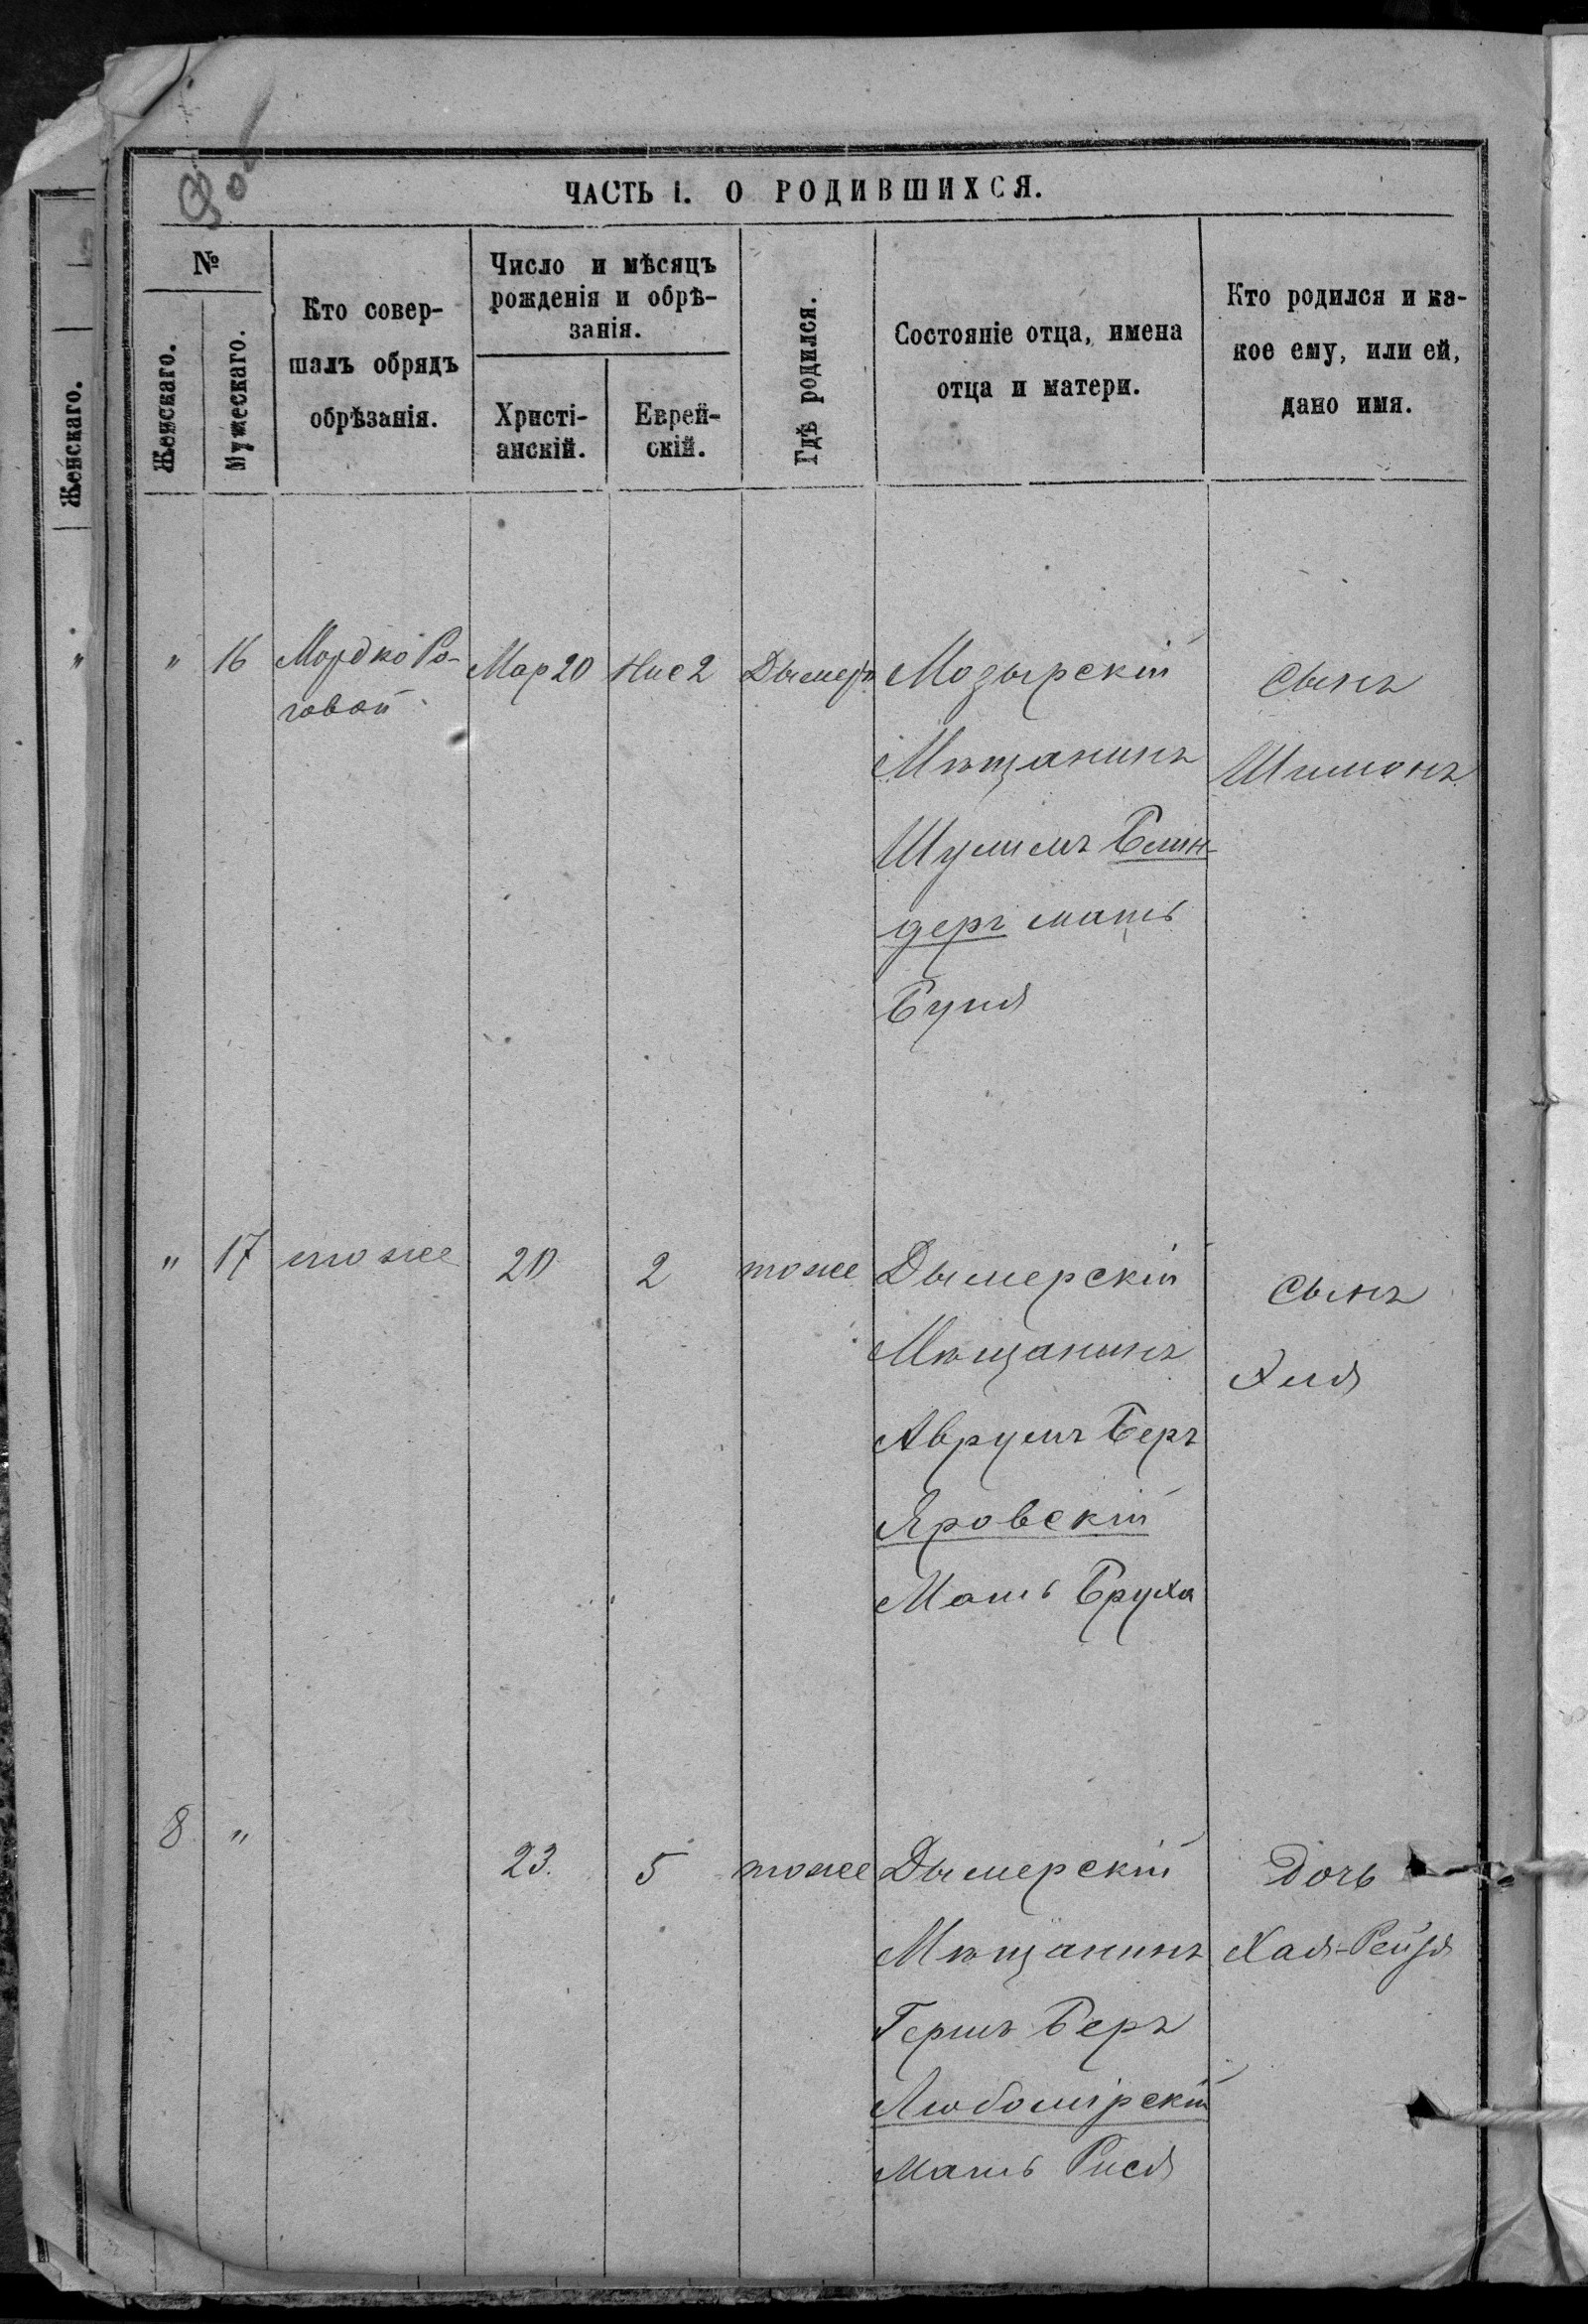 ЧАСТЬ I. О РОДИВШИХСЯ.
№
Женскаго.
Мужескаго.
Кто совер-
шалъ обрядъ
обрѣзанія.
Число и мѣсяцъ
рожденія и обрѣ-
занія.
Христі-
анскій.
Еврей-
скій.
Гдѣ родился.
Состояніе отца, имена
отца и матери.
Кто родился и ка-
кое ему, или ей,
дано имя.
Женскаго.
"
" 16 Мордко Ро-
говой
Мар 20 Нис 2 Дымеръ
Мозырскій
Мѣщанинъ
Шулимъ Блин-
деръ мать
Буня
Сынъ
Шимонъ
" 17 тоже 20 2 тоже
Дымерскій
Мѣщанинъ
Аврумъ Беръ
Яровскій
Мать Бруха
Сынъ
8 " 23. 5 тоже
Дымерскій
Мѣщанинъ
Гершъ Беръ
Любомірскій
мать Рися
Дочь
Хая-Рейзя